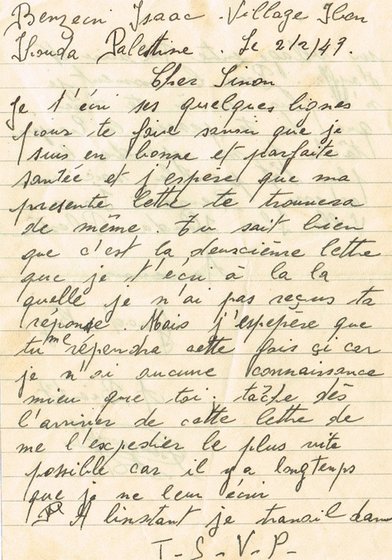 Benzecri Isaac. Village Iben
Houda Palestine. Le 2/2/47.
Cher Simon
Je t'écri ses quelques lignes
pour te faire savoir que je
suis en bonne et parfaite
santée et j'espère que ma
presente lettre te trouvera
de même. Tu sait bien
que c'est la deuxcième lettre
que je t'ecri à la la
quelle je n'ai pas reçus ta
réponse. Mais j'espepère que
tu me répendra cette fois çi car
je n'si aucune connaissance
mieu que toi. tache dès
l'arrivier de cette lettre de
me l'expedier le plus vite
possible car il y a longtemps
que je ne leur écri
A l'instant je travail dans
T-S-V-P